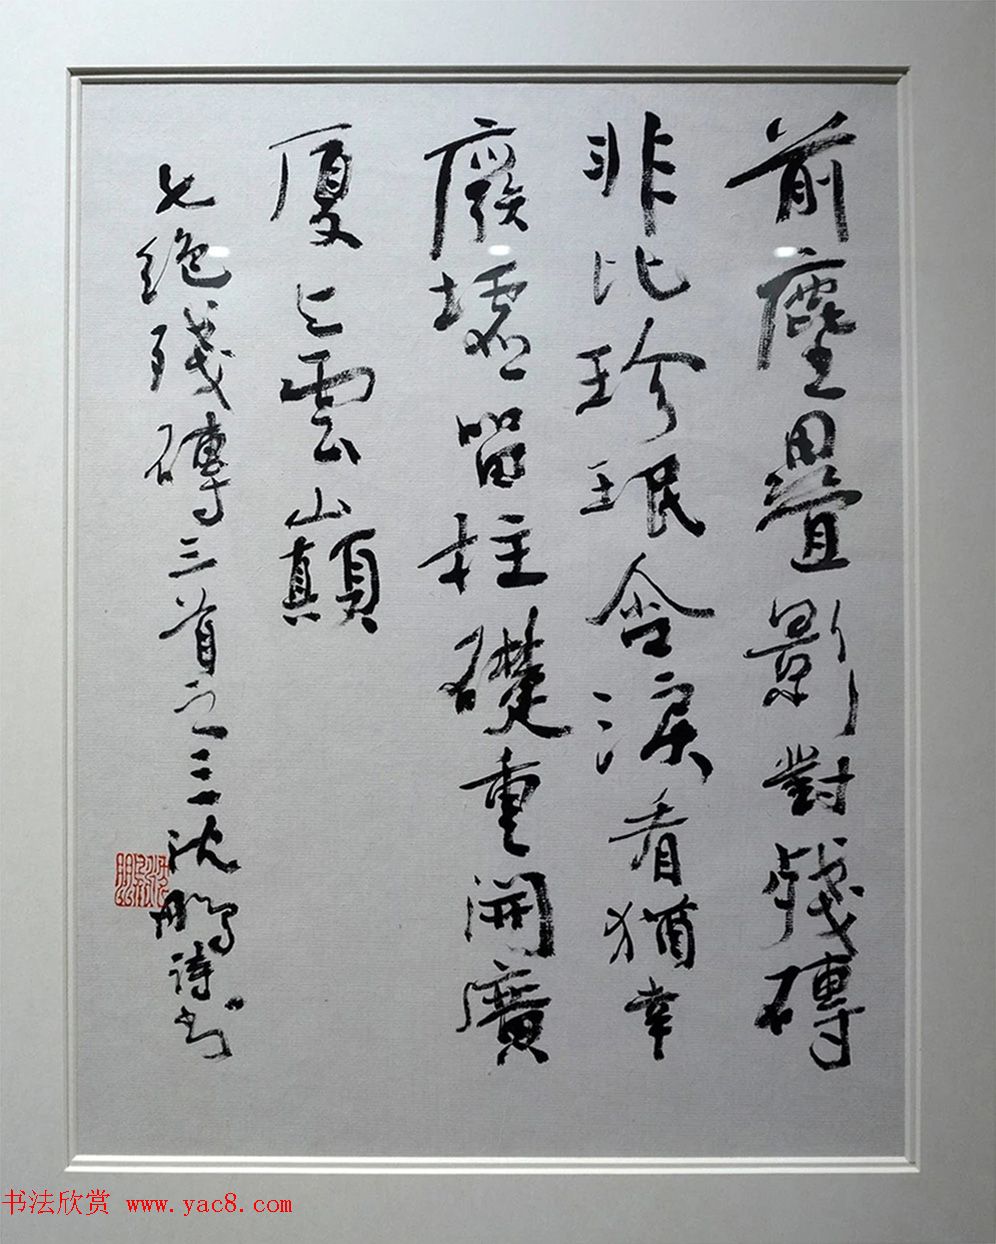 前塵疊影對殘磚
非比珍珉含淚看猶幸
廢墟留柱礎重開廣
廈上雲山巔
七絕殘磚三首之三沈鵬詩書
沈鵬
书法欣赏 www.yac8.com